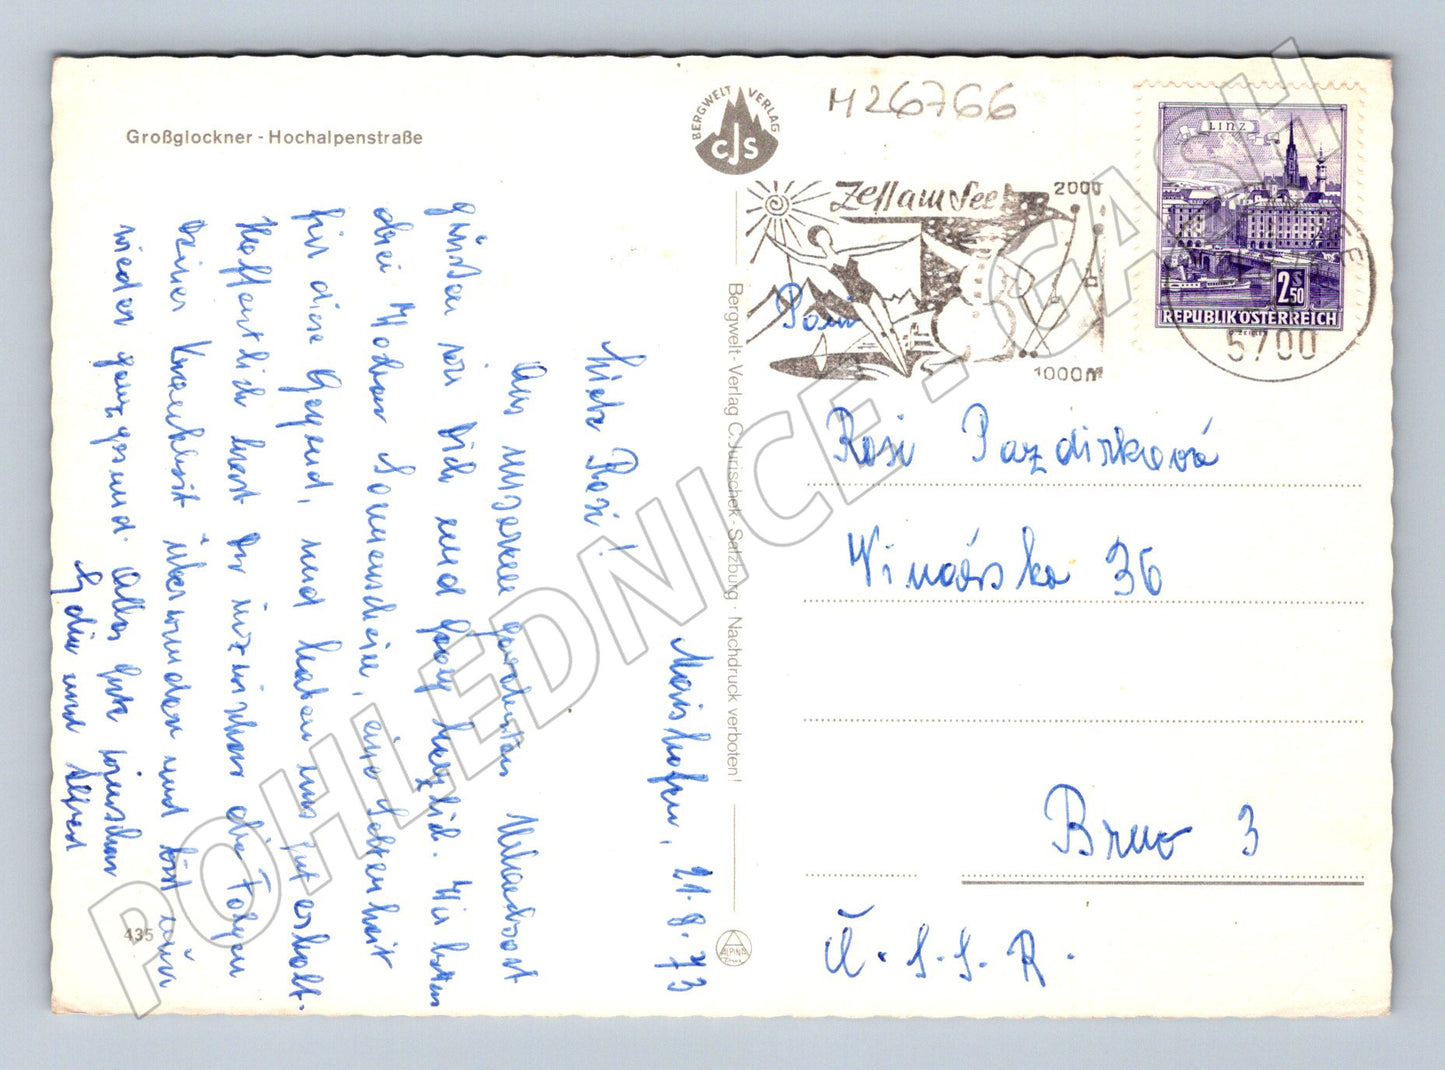 Großglockner - Hochalpenstraße
BERGWELT VERLAG
CJS
M26766
LINZ
2 S 50
REPUBLIK ÖSTERREICH
Zell am See
2000
1000 m
5700
Maishofen, 21.8.73
Liebe Rosi!
Aus unserem gewohnten Urlaubsort
grüßen wir Dich und Georg herzlich. Wir hatten
drei Wochen Sonnenschein, eine Seltenheit
für diese Gegend, und haben uns gut erholt.
Hoffentlich hast Du inzwischen die Folgen
Deiner Krankheit überwunden und bist nun
wieder ganz gesund. Alles Gute wünschen
und Alfred
Bergwelt-Verlag C. Jurischek · Salzburg · Nachdruck verboten!
Paní
Rosi Pazdírková
Vinařská 36
Brno 3
Č.S.S.R.
435
ALPINA
POHLEDNICE - GASH